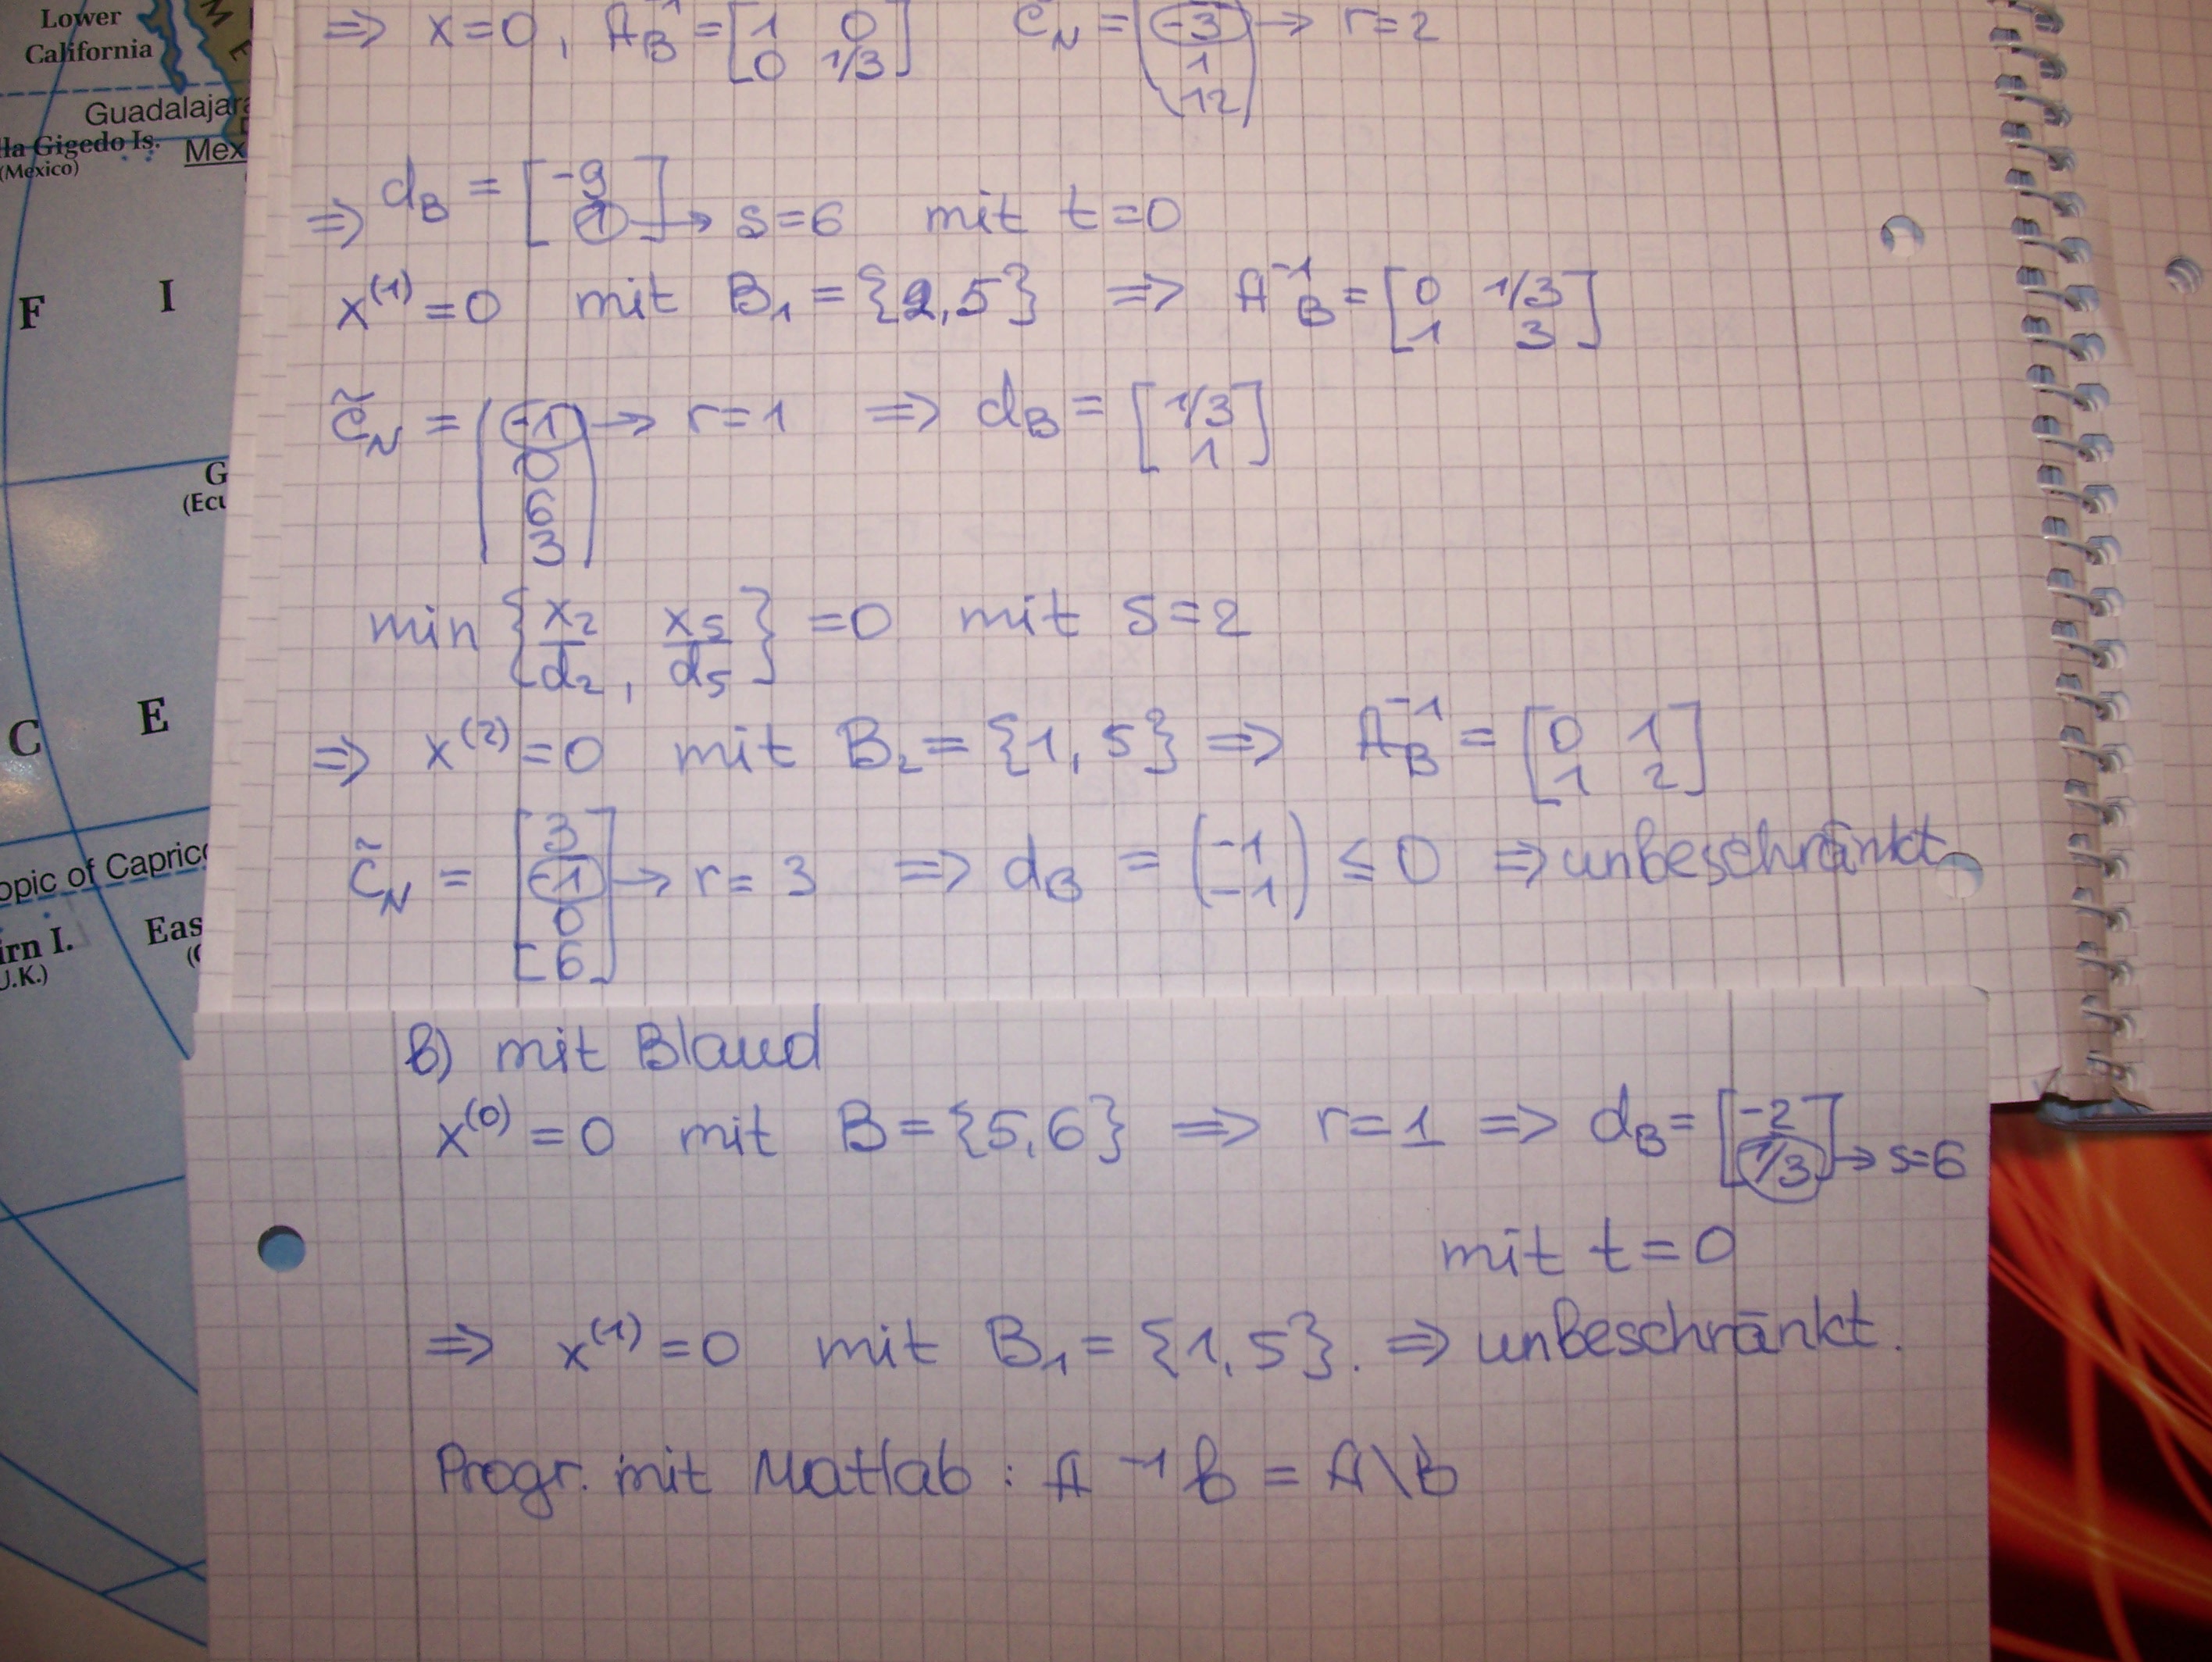 Lower
California
ME
Guadalajara
lla Gigedo Is.
(Mexico)
Mex
F I
G
(Ecu
C E
opic of Caprico
irn I.
U.K.)
Eas
(C
⇒ x=0, A_B^-1 = [1 0; 0 1/3] c̃_N = (-3; 1; 12) → r=2
⇒ d_B = [-9; 1] → s=6 mit t=0
x^(1) = 0 mit B_1 = {2,5} ⇒ A_B^-1 = [0 1/3; 1 3]
c̃_N = (-1; 0; 6; 3) → r=1 ⇒ d_B = [1/3; 1]
min {x_2/d_2, x_5/d_5} = 0 mit s=2
⇒ x^(2) = 0 mit B_2 = {1,5} ⇒ A_B^-1 = [0 1; 1 2]
c̃_N = [3; -1; 0; 6] → r=3 ⇒ d_B = (-1; -1) ≤ 0 ⇒ unbeschränkt
b) mit Bland
x^(0) = 0 mit B = {5,6} ⇒ r=1 ⇒ d_B = [-2; 1/3] → s=6
mit t=0
⇒ x^(1) = 0 mit B_1 = {1,5}. ⇒ unbeschränkt.
Progr. mit Matlab : A^-1 b = A\b